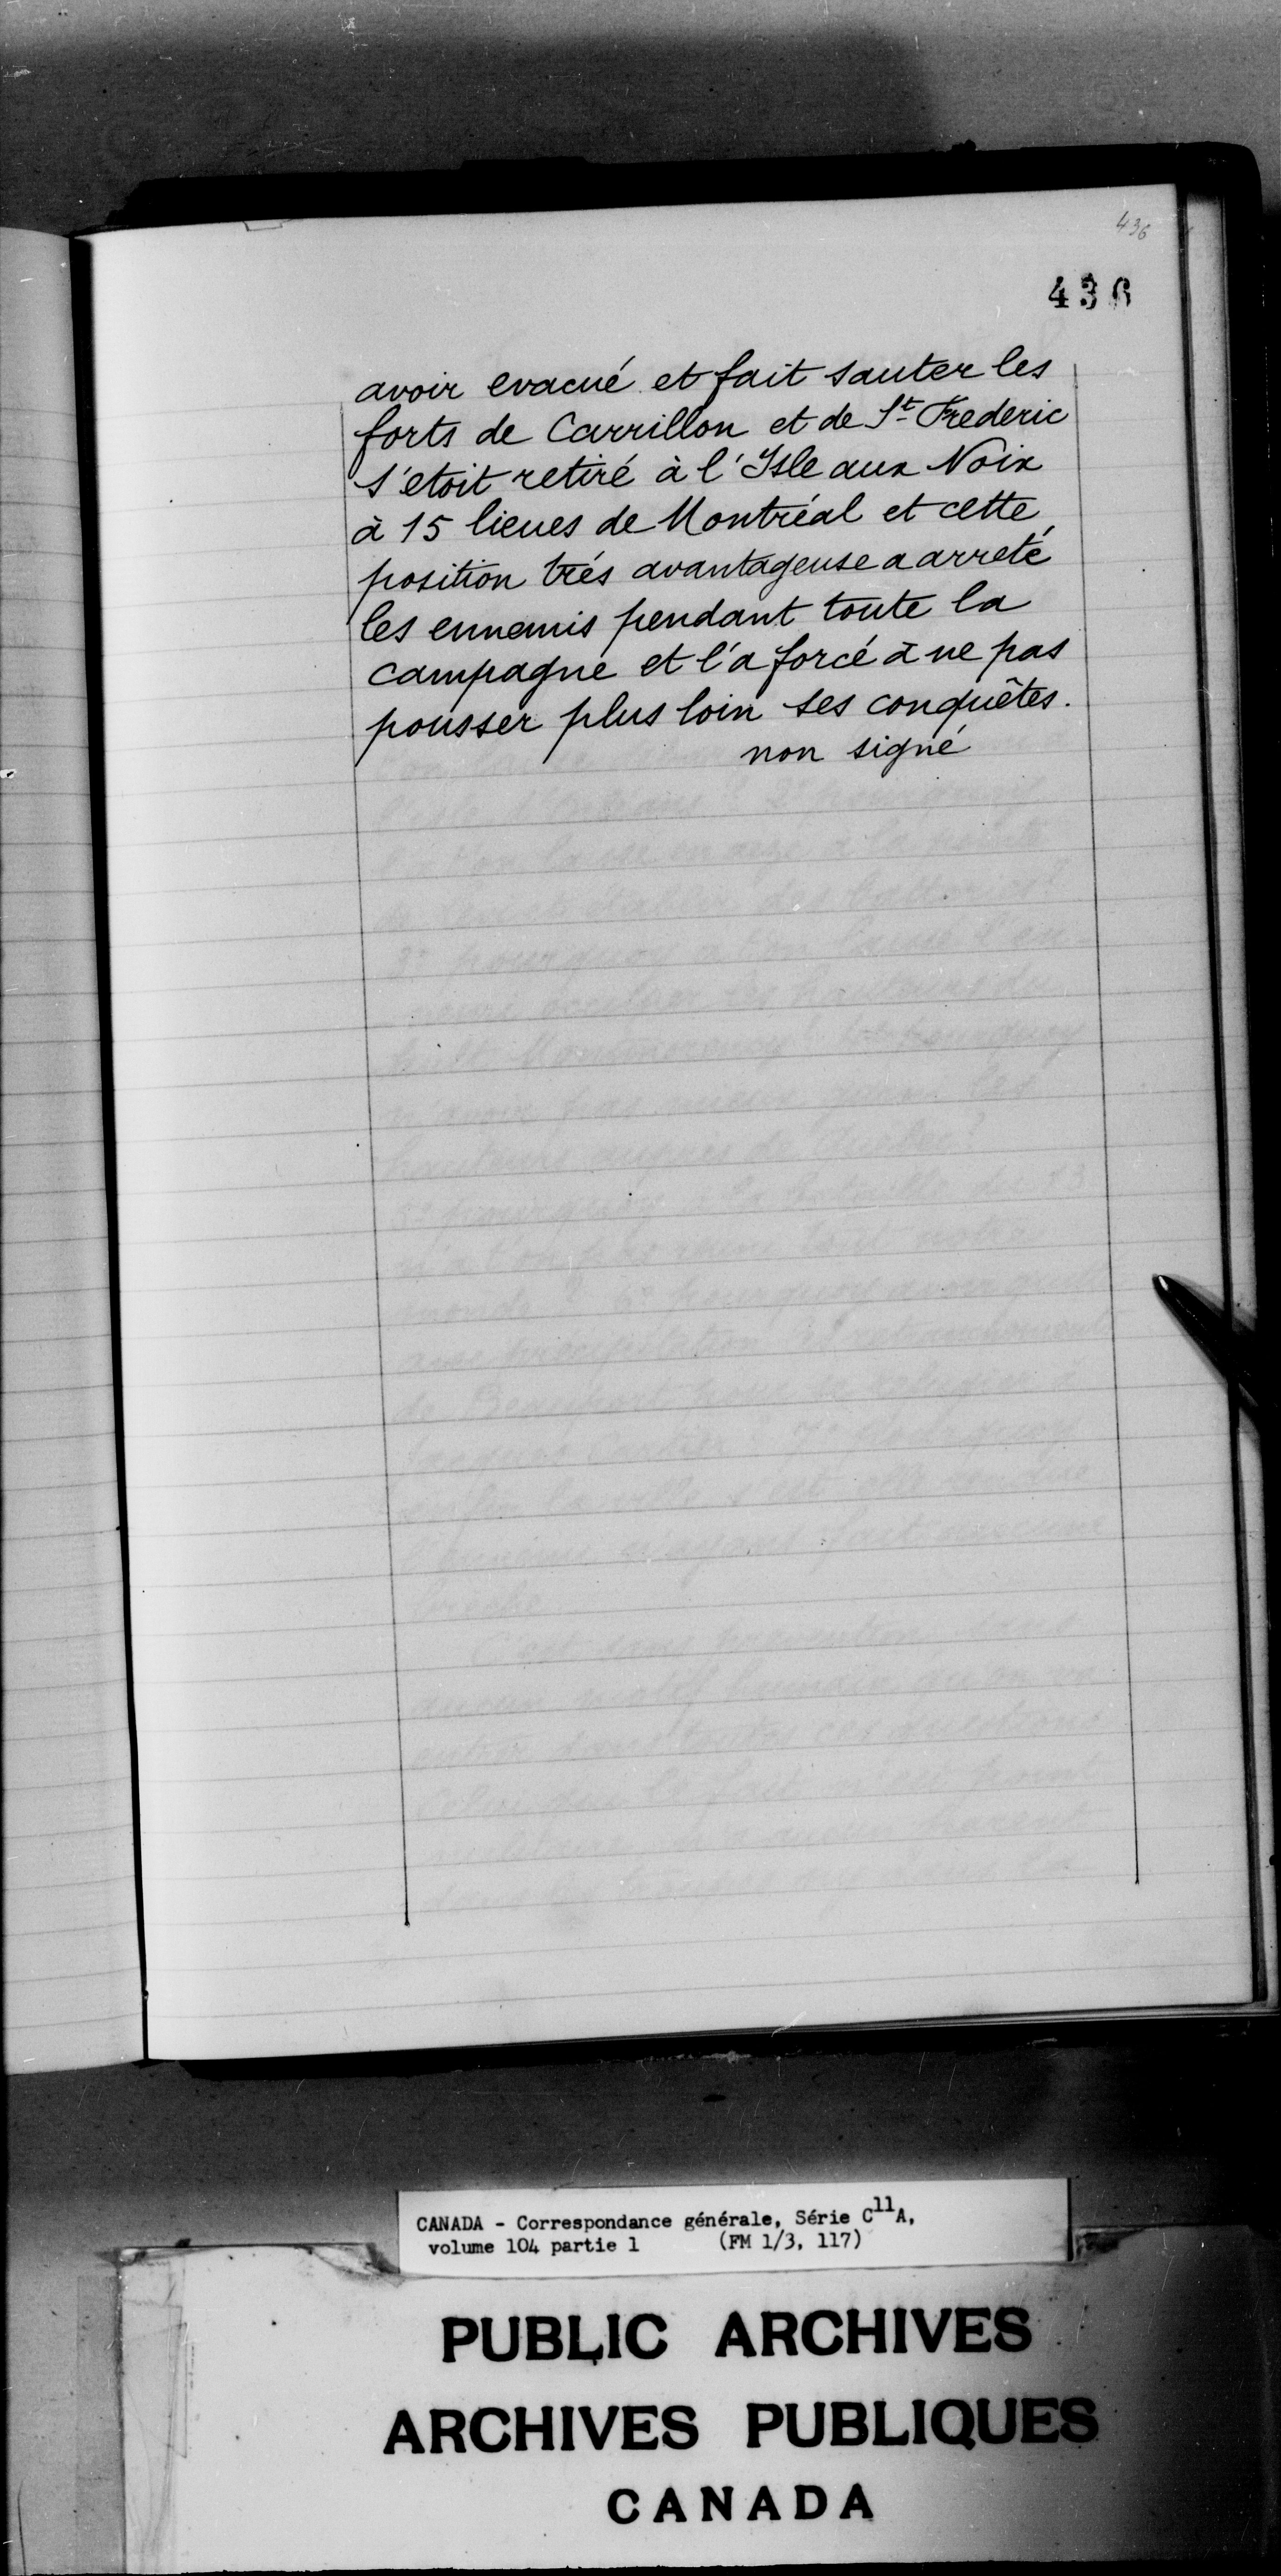 436
436
avoir evacué et fait sauter les
forts de Carrillon et de St Frederic
s'etoit retiré à l'Isle aux Noix
à 15 lieues de Montréal et cette
position trés avantageuse a arreté
les ennemis pendant toute la
campagne et l'a forcé à ne pas
pousser plus loin ses conquêtes.
non signé
CANADA - Correspondance générale, Série C11A,
volume 104 partie 1 (FM 1/3, 117)
PUBLIC ARCHIVES
ARCHIVES PUBLIQUES
CANADA